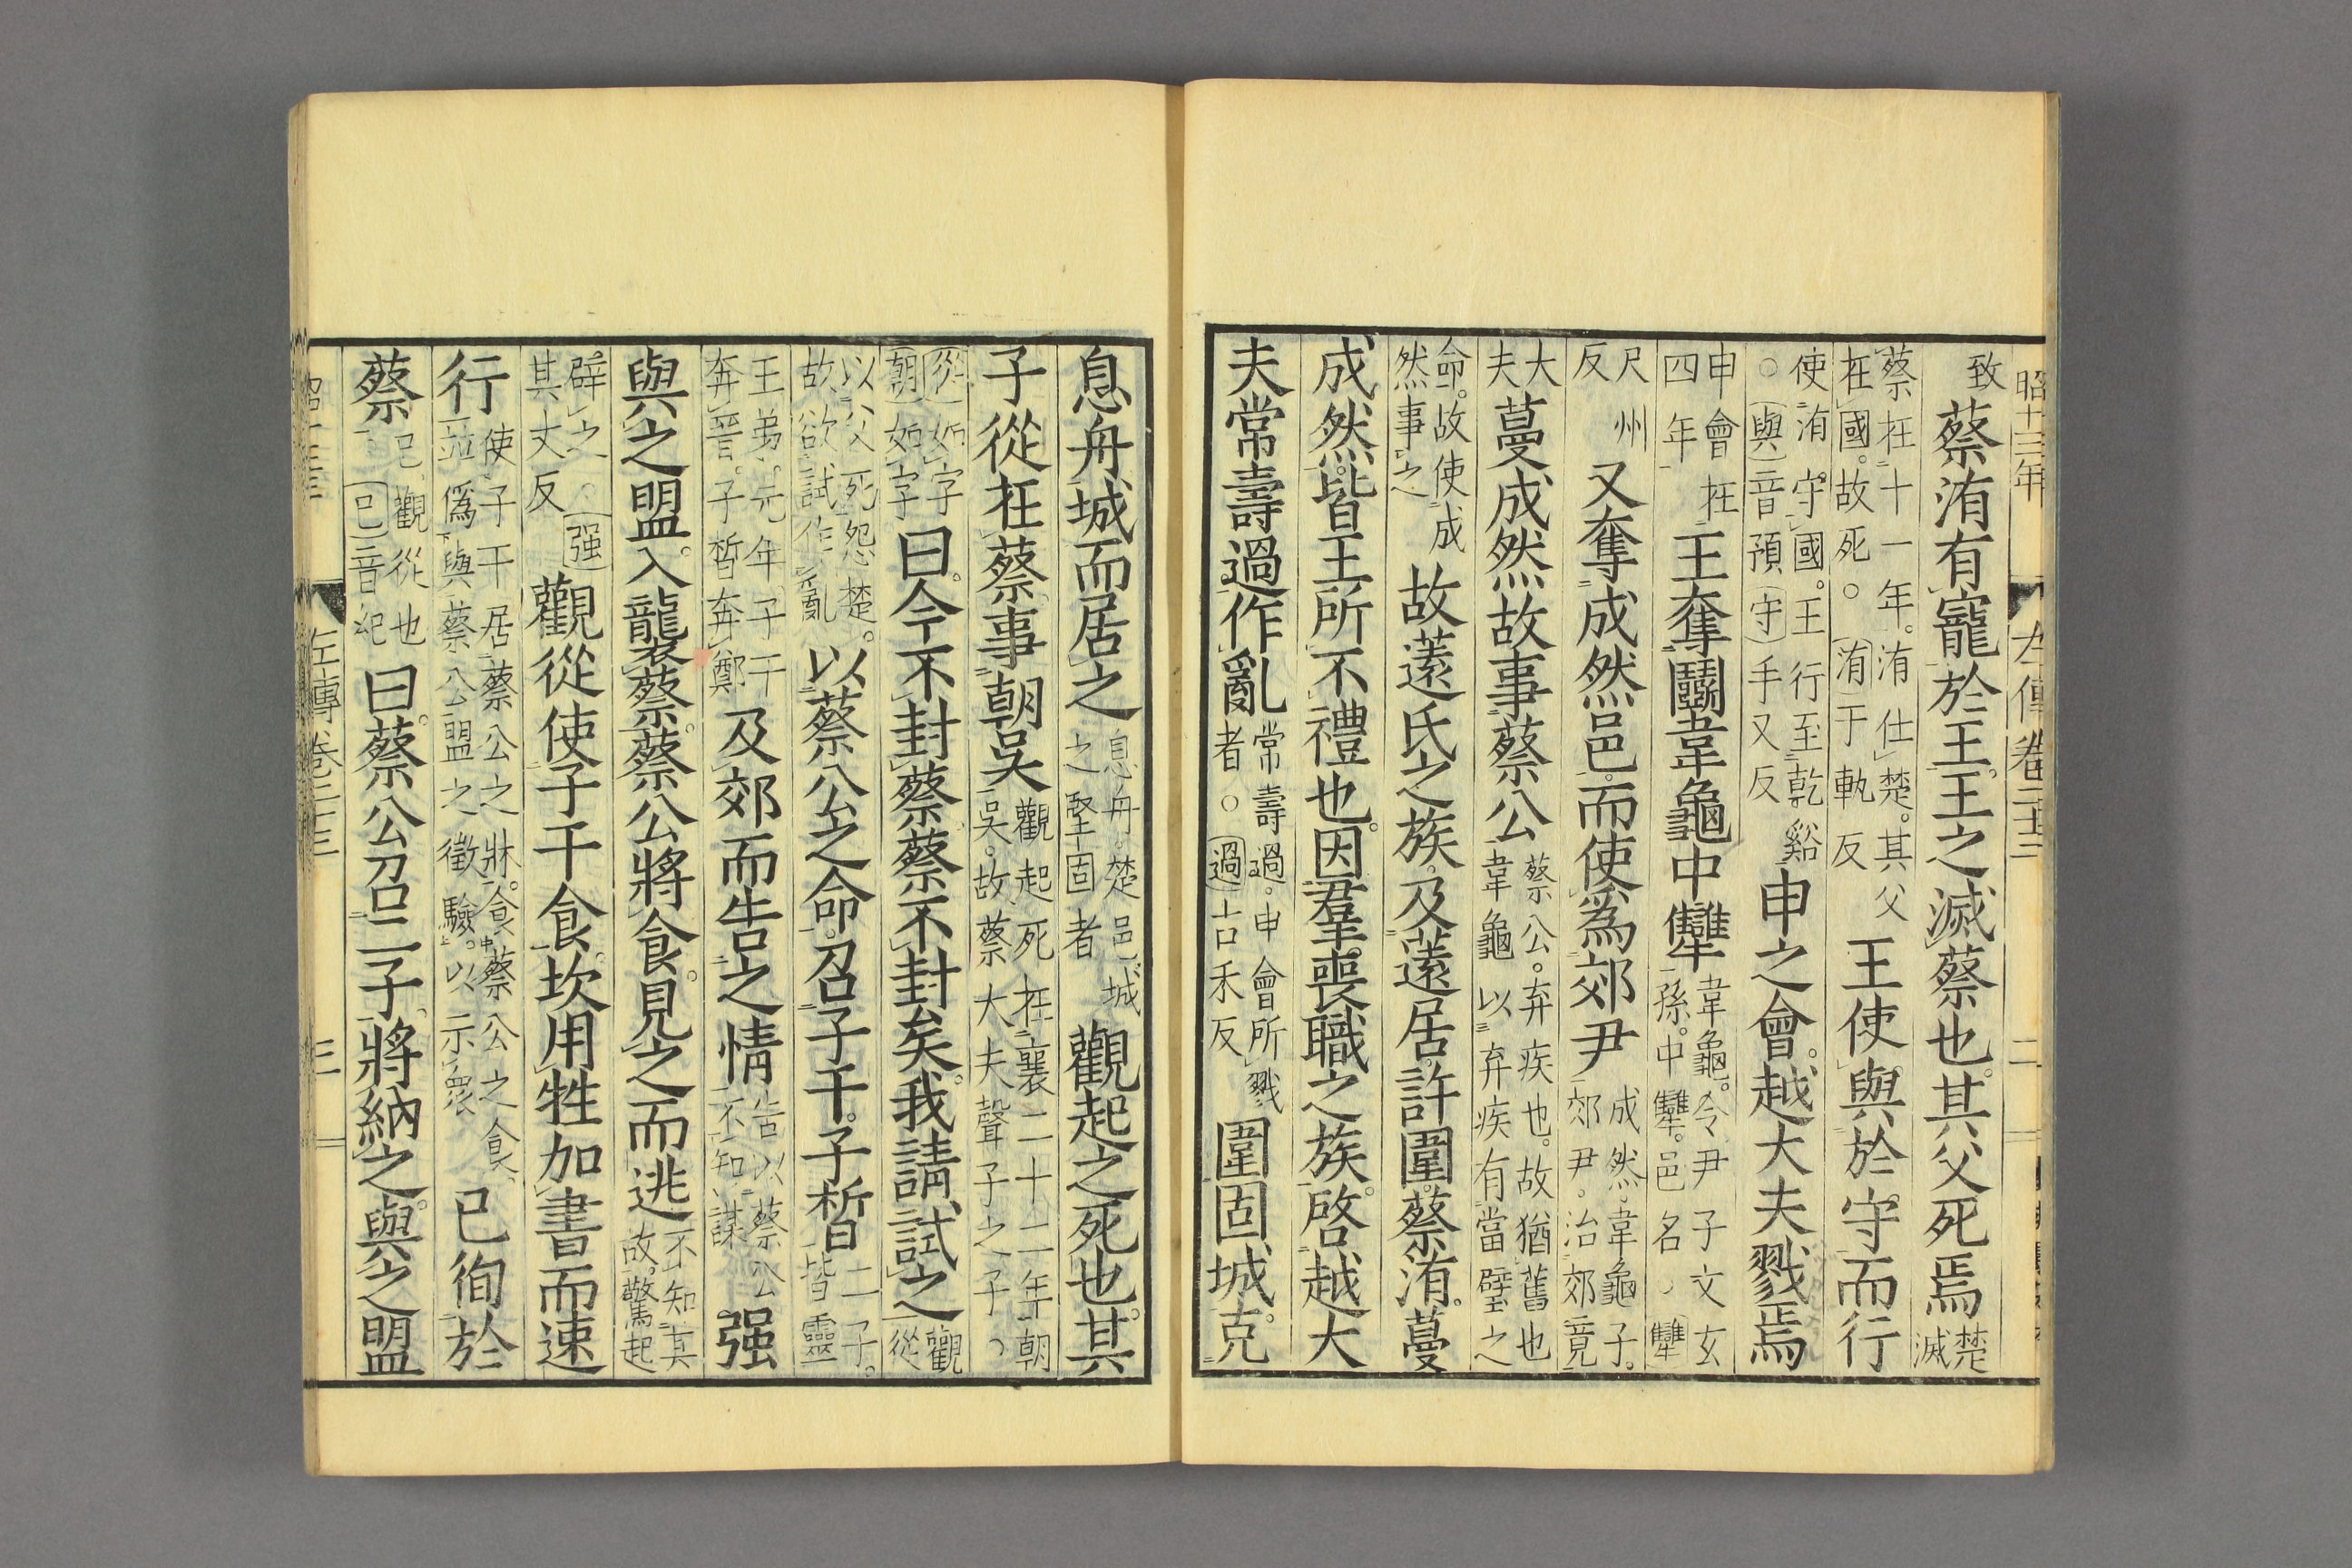 昭十三年 左傳卷二十三 二
致蔡洧有寵於王。王之滅蔡也。其父死焉楚滅
蔡在十一年。洧仕楚。其父在國。故死。○洧于軌反王使與於守而行
使洧守國。王行至乾谿○與音預守手又反申之會。越大夫戮焉
申會在四年王奪鬭韋龜中犨韋龜。令尹子文玄孫。中犨。邑名、犨
尺州反又奪成然邑。而使爲郊尹成然。韋龜子。郊尹。治郊竟
大夫蔓成然故事蔡公蔡公。弃疾也。故猶舊也韋龜以弃疾有當璧之
命。故使成然事之故薳氏之族。及薳居許圍。蔡洧。蔓
成然。皆王所不禮也。因羣喪職之族。啓越大
夫常壽過作亂常壽過。申會所戮者。○過古禾反圍固城。克
息舟。城而居之息舟。楚邑城之堅固者觀起之死也。其
子從在蔡。事朝吳觀起死在襄二十二年朝吳。故蔡大夫聲子之子。
從如字朝如字曰。今不封蔡。蔡不封矣。我請試之觀從
以父死怨楚。故欲試作亂以蔡公之命。召子干。子晳二子。皆靈
王弟。元年。子干奔晉。子晳奔鄭及郊而告之情告以蔡公不知謀强
與之盟。入襲蔡。蔡公將食。見之而逃不知其故。驚起
辟之。○强其丈反觀從使子干食。坎用牲加書而速
行使子干居蔡公之牀。食蔡公之食、並僞與蔡公盟之徵驗。以示衆已徇於
蔡己觀從也己音紀曰。蔡公召二子。將納之。與之盟
昭十三年 左傳卷二十三 三